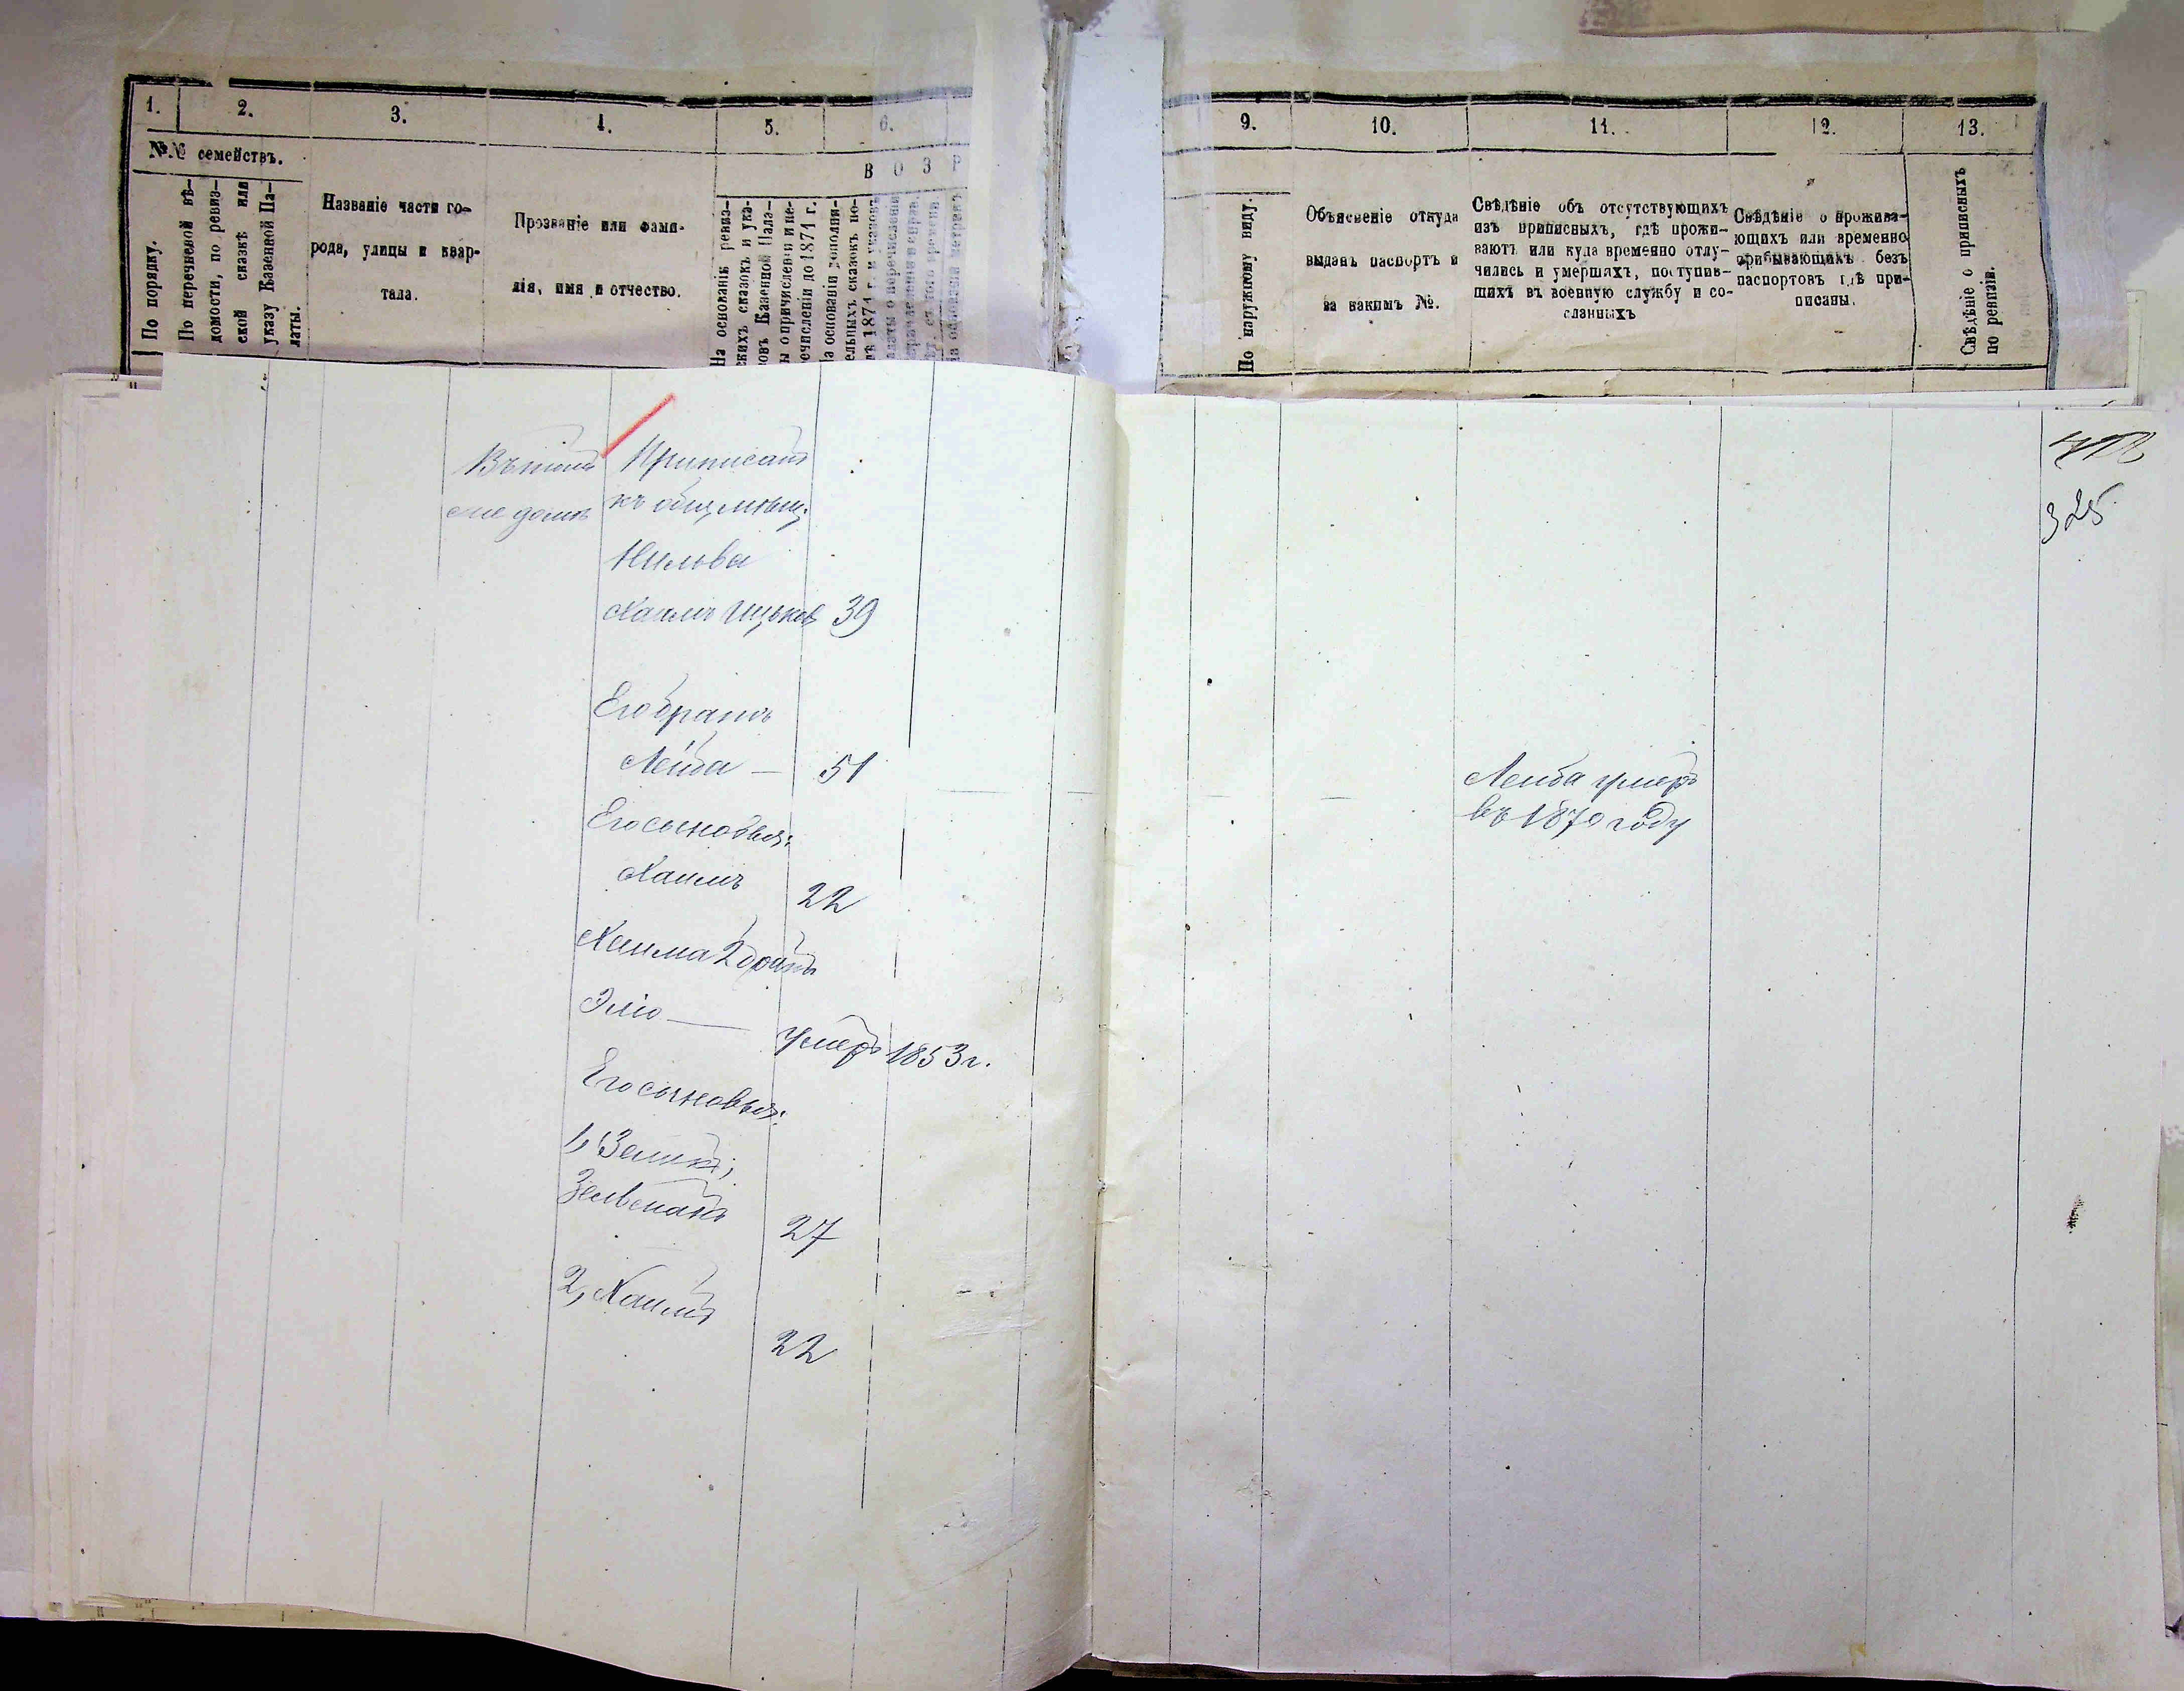 1.
2.
3.
4.
5.
6.
№№ семействъ.
В О З Р
По порядку.
По перечневой вѣ-
домости, по ревиз-
ской сказкѣ или
указу Казенной Па-
латы.
Названіе части го-
рода, улицы и квар-
тала.
Прозваніе или фами-
лія, имя и отчество.
На основаніи ревиз-
скихъ сказокъ и ука-
зовъ Казенной Пала-
ты о причисленіи и пе-
речисленіи до 1874 г.
На основаніи дополни-
тельныхъ сказокъ по-
слѣ 1874 г. и указовъ
9.
10.
11.
12.
13.
По наружному виду.
Объясненіе откуда
выданъ паспортъ и
за какимъ №.
Свѣдѣніе объ отсутствующихъ
изъ приписныхъ, гдѣ прожи-
ваютъ или куда временно отлу-
чились и умершихъ, поступив-
шихъ въ военную службу и со-
сланныхъ
Свѣдѣніе о прожива-
ющихъ или временно
прибывающихъ безъ
паспортовъ гдѣ при-
писаны.
Свѣдѣніе о приписныхъ
по ревизіи.
Въ томъ
же домѣ
Приписанъ
къ общ мѣщ.
Хаимъ Ицьковъ 39
Его братъ
Лейба — 51
Его сыновья:
Хаимъ 22
Хаима 2 братъ
Эліо — умеръ 1853 г.
Его сыновья:
1, Зеликъ,
27
2, Хаимъ
22
Лейба умеръ
въ 1870 году
325